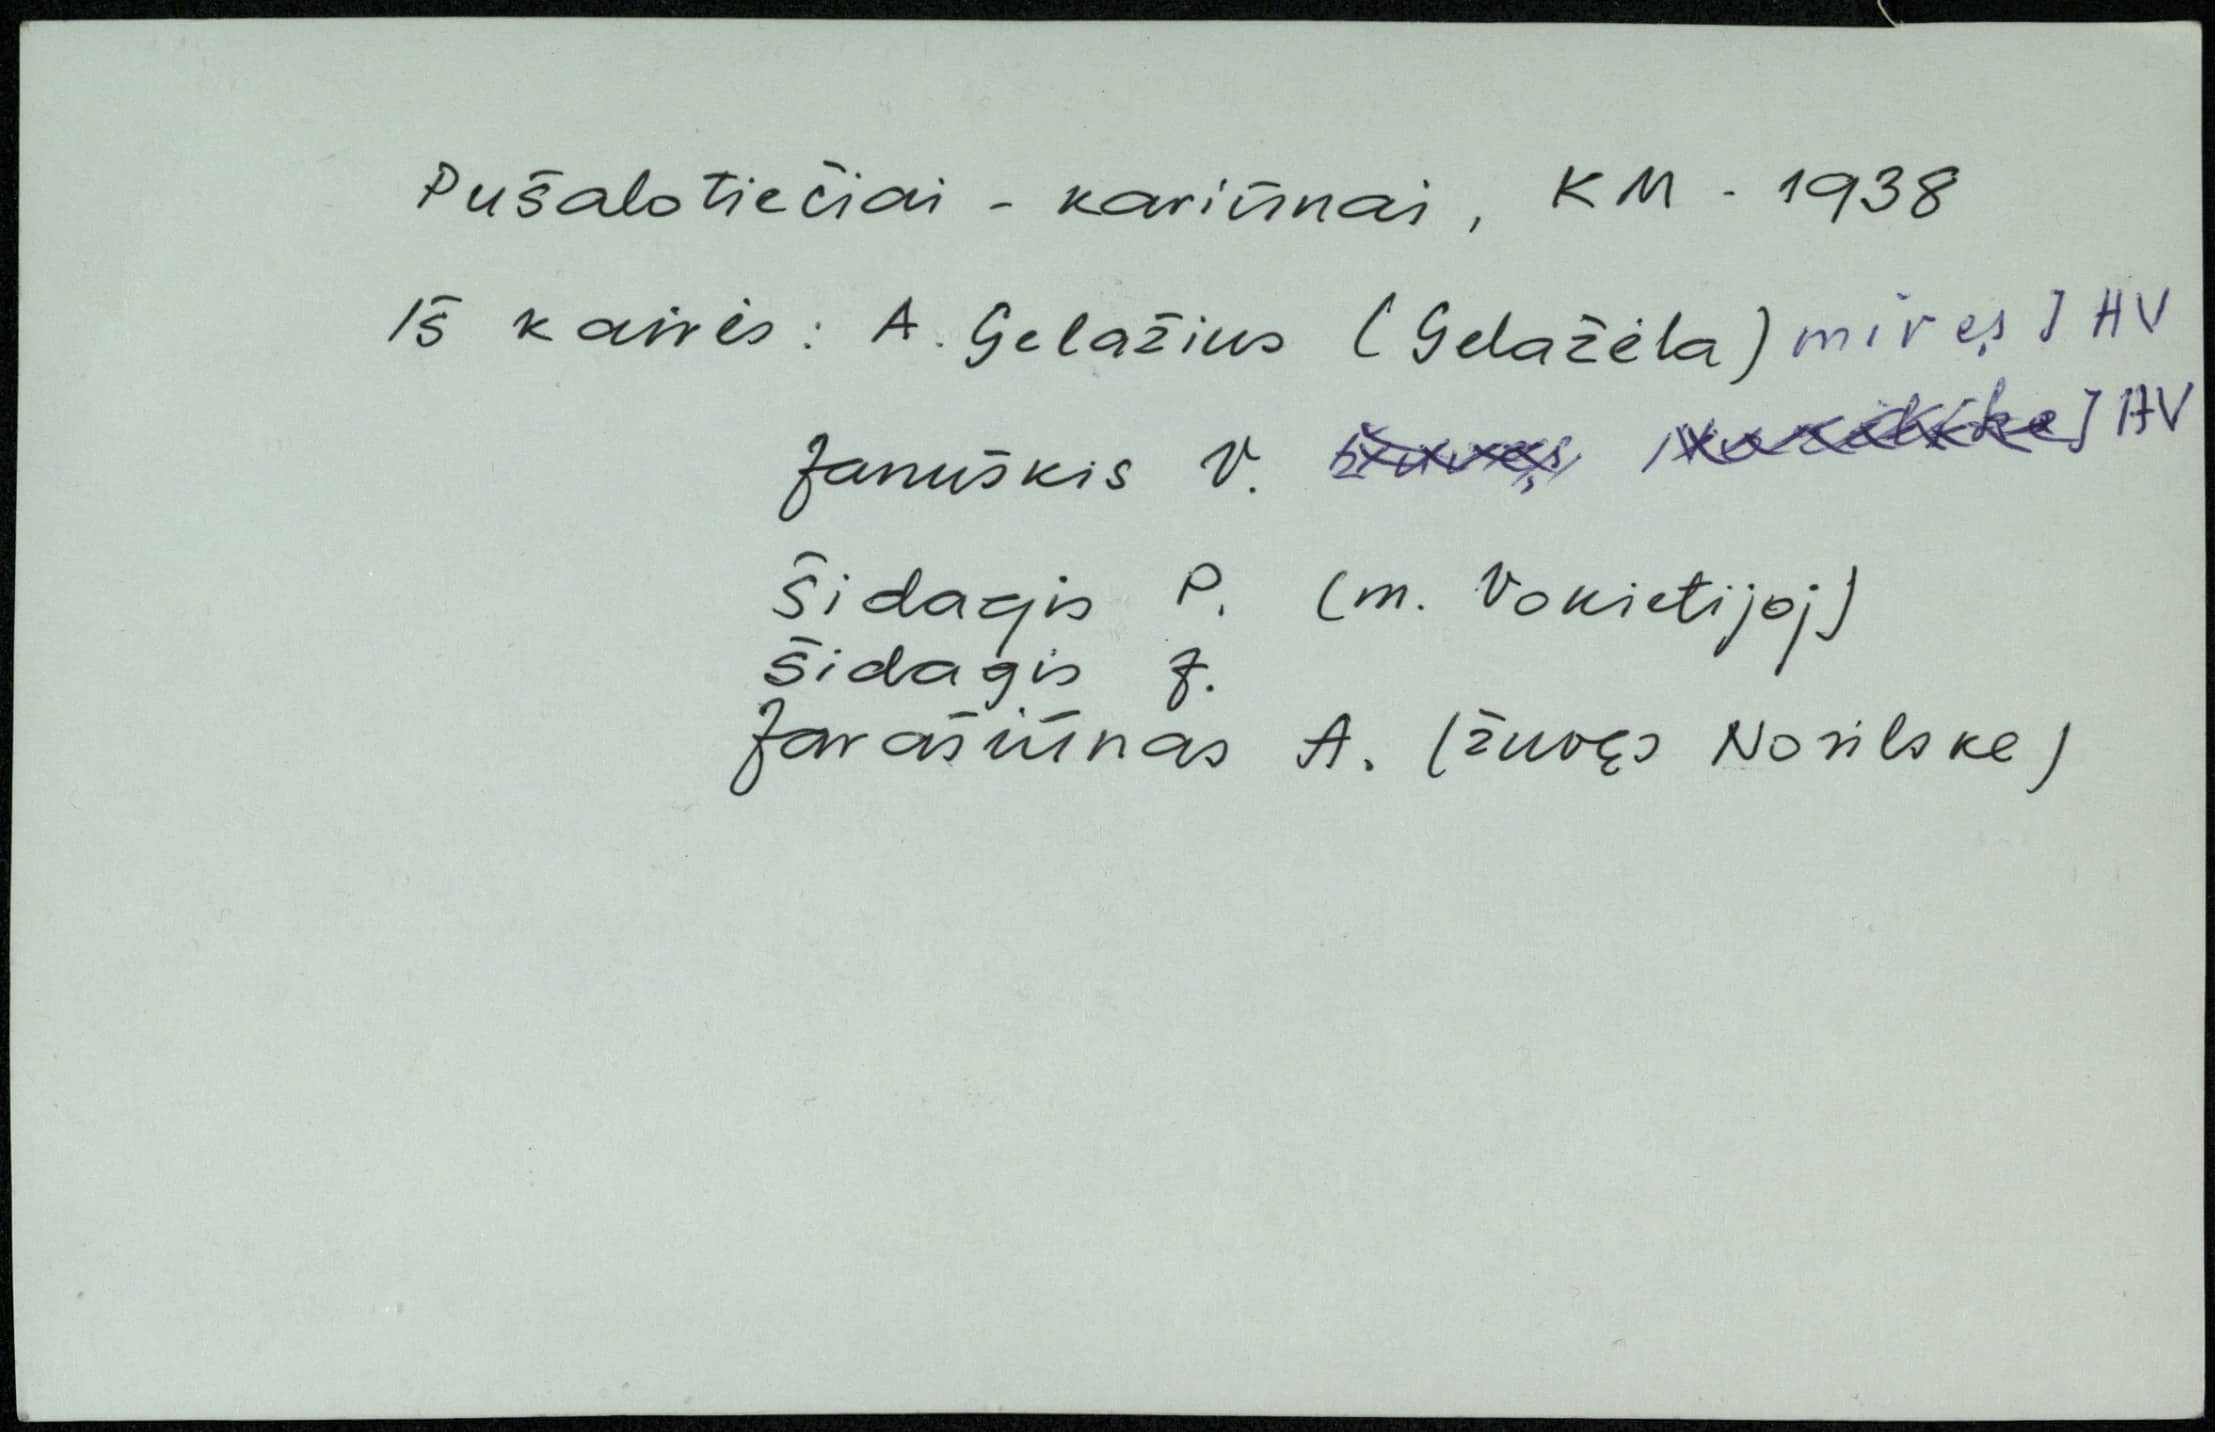 Pušalotiečiai - kariūnai, KM - 1938
Iš kairės: A. Gelažius (Gelažėla) miręs JAV
Januškis V. žuvęs Norilske JAV
Šidagis P. (m. Vokietijoj)
Šidagis J.
Jarašiūnas A. (žuvęs Norilske)